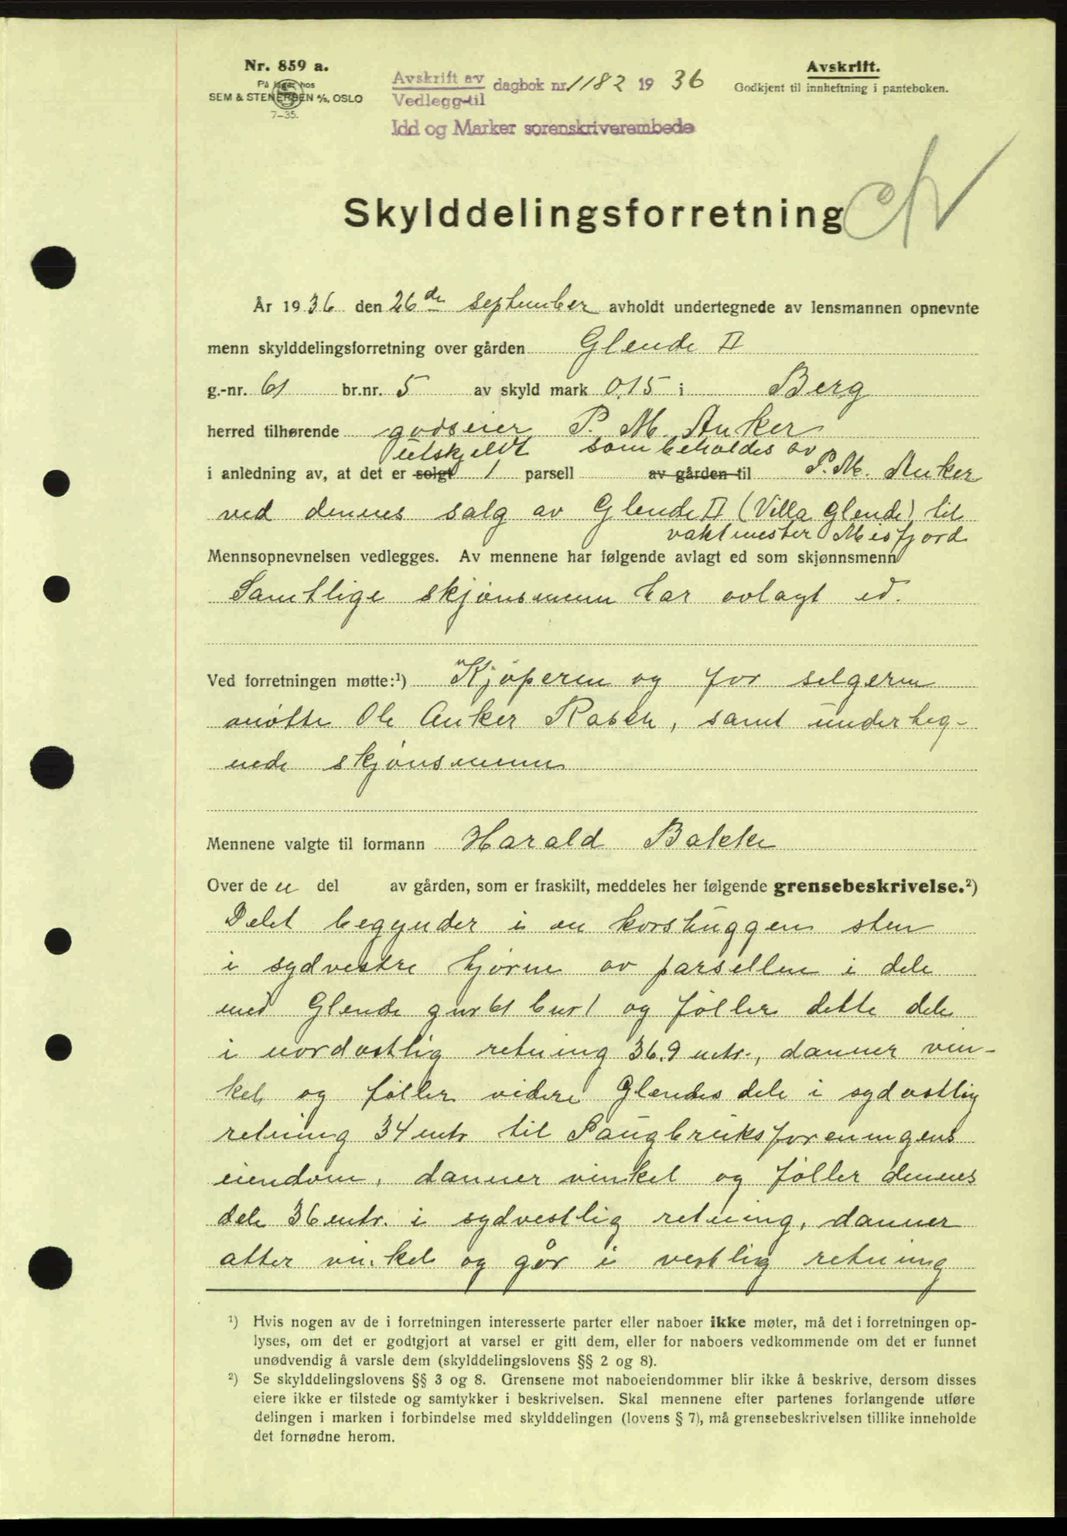 Nr. 859 a.
På lager hos
SEM & STENERSEN A/S, OSLO
7-35.
Avskrift av
Vedlegg til
dagbok nr. 1182 1936
Idd og Marker sorenskriverembede
Avskrift.
Godkjent til innheftning i panteboken.
Skylddelingsforretning
År 1936 den 26de september avholdt undertegnede av lensmannen opnevnte
menn skylddelingsforretning over gården Glende II
g.-nr. 61 br.nr. 5 av skyld mark 0,15 i Berg
herred tilhørende godseier P. M. Anker
utskjeldt som beholdes av
i anledning av, at det er solgt 1 parsell av gården til P. M. Anker
ved dennes salg av Glende II (Villa Glende) til
vaktmester Misfjord
Mennsopnevnelsen vedlegges. Av mennene har følgende avlagt ed som skjønnsmenn
Samtlige skjønsmenn har avlagt ed.
Ved forretningen møtte:¹) Kjøperen og for selgeren
møtte Ole Anker Rasch, samt underteg-
nede skjønsmenn
Mennene valgte til formann Harald Bakke
Over de n del av gården, som er fraskilt, meddeles her følgende grensebeskrivelse.²)
Delet begynder i en korshuggen sten
i sydvestre hjørne av parsellen i dele
med Glende gnr 61 bnr 1 og følger dette dele
i nordostlig retning 36,9 mtr., danner vin-
kel og følger videre Glendes dele i sydostlig
retning 34 mtr til Saugbruksforeningens
eiendom, danner vinkel og følger dennes
dele 36 mtr. i sydvestlig retning, danner
atter vinkel og går i vestlig retning
¹) Hvis nogen av de i forretningen interesserte parter eller naboer ikke møter, må det i forretningen op-
lyses, om det er godtgjort at varsel er gitt dem, eller for naboers vedkommende om det er funnet
unødvendig å varsle dem (skylddelingslovens §§ 2 og 8).
²) Se skylddelingslovens §§ 3 og 8. Grensene mot naboeiendommer blir ikke å beskrive, dersom disses
eiere ikke er tilstede og samtykker i beskrivelsen. Skal mennene efter partenes forlangende utføre
delingen i marken i forbindelse med skylddelingen (lovens § 7), må grensebeskrivelsen tillike inneholde
det fornødne herom.